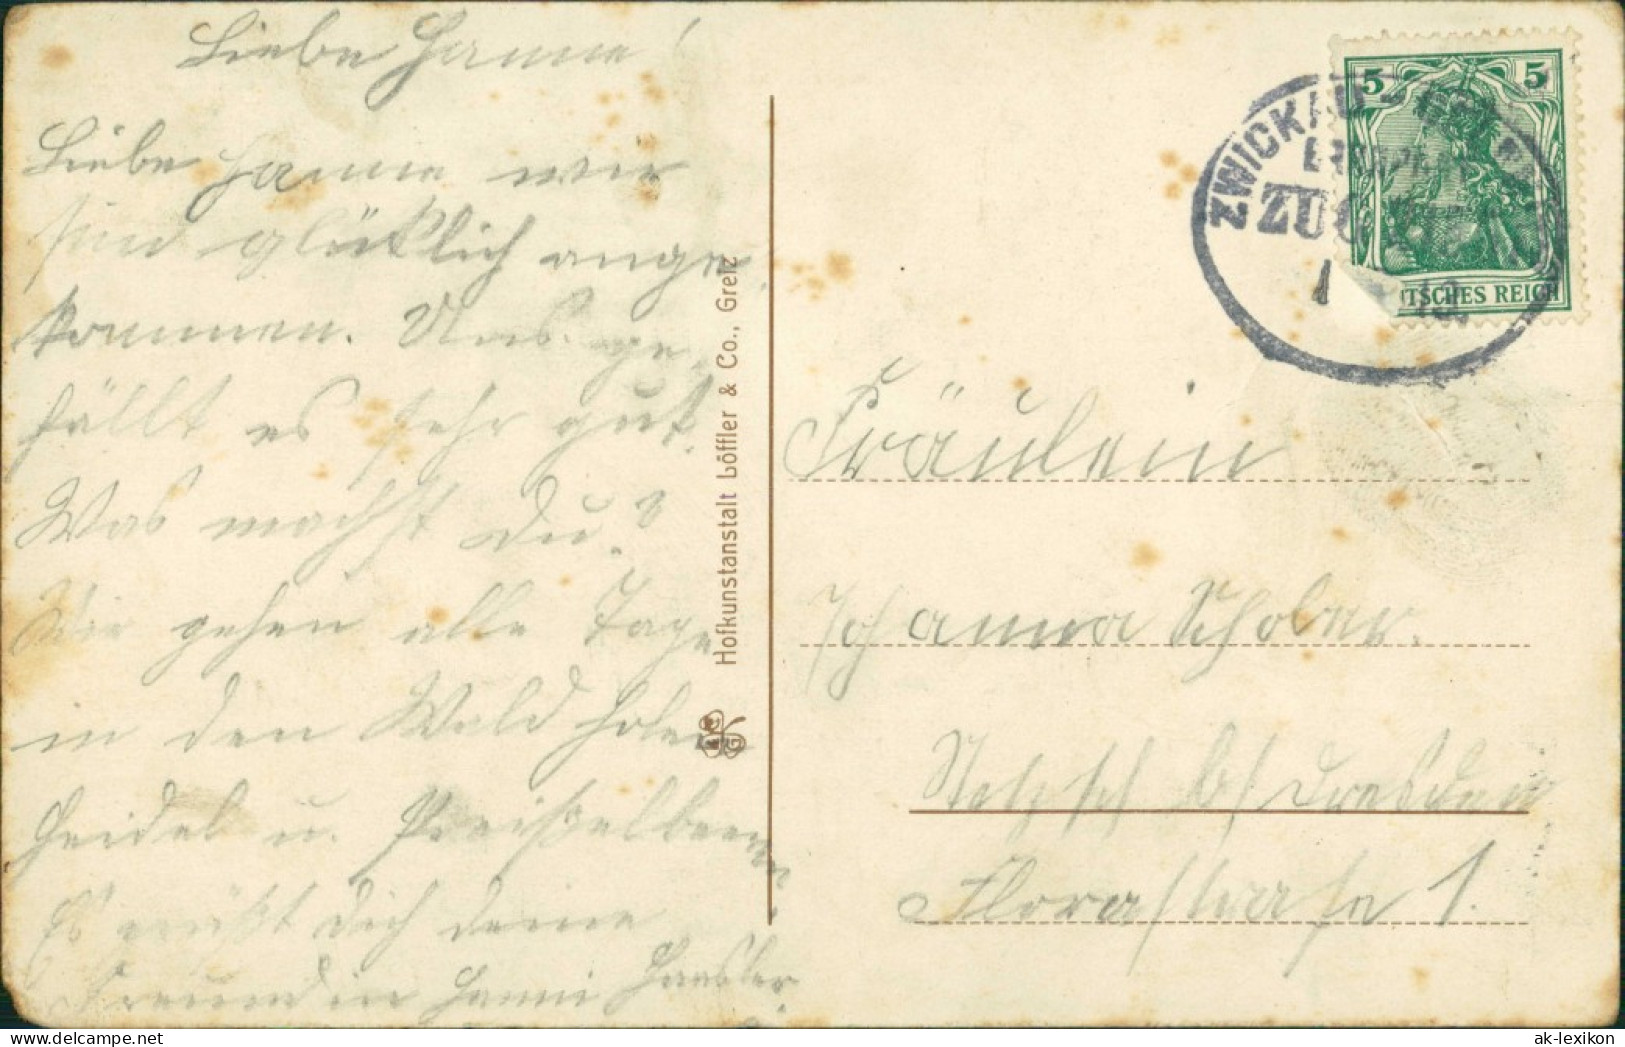 Liebe Hanne!
Liebe Hanne wir
sind glücklich ange
kommen. Uns ge
fällt es sehr gut.
Was machst Du?
Wir gehen alle Tage
in den Wald holen
Heidel u. Preißelbeeren
Es grüßt Dich deine
Freundin Hanni
Hofkunstanstalt Löffler & Co., Greiz
ZWICKAU
ZUG
5 5
DEUTSCHES REICH
Fräulein
Johanna Schober.
b/ Dresden
Florastraße 1.
ak-lexikon